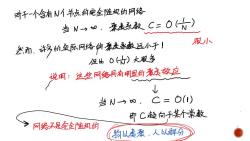 对于一个含有N个节点的完全随机的网络
当 N→∞. 聚类系数 C = O(1/N)
很小
然而, 许多的实际网络的聚类系数远小于1
但比 O(1/N) 大很多
说明: 这些网络具有明显的聚类效应
当 N→∞. C = O(1)
即C趋向于某个常数
网络不是完全随机的
物以类聚, 人以群分